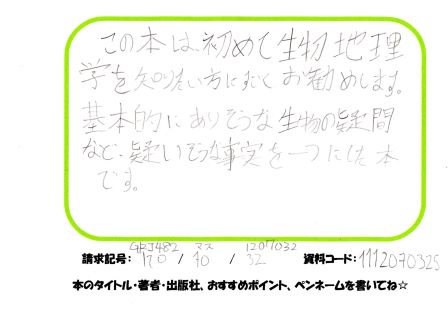 この本は、初めて生物地理
学を知りたい方にすごくお勧めします。
基本的にありそうな生物の疑問
など、疑いそうな事実を一つにした本
です。
GRJ482 マス 1207032
請求記号: 170 / 40 / 32 資料コード: 1112070325
本のタイトル・著者・出版社、おすすめポイント、ペンネームを書いてね☆